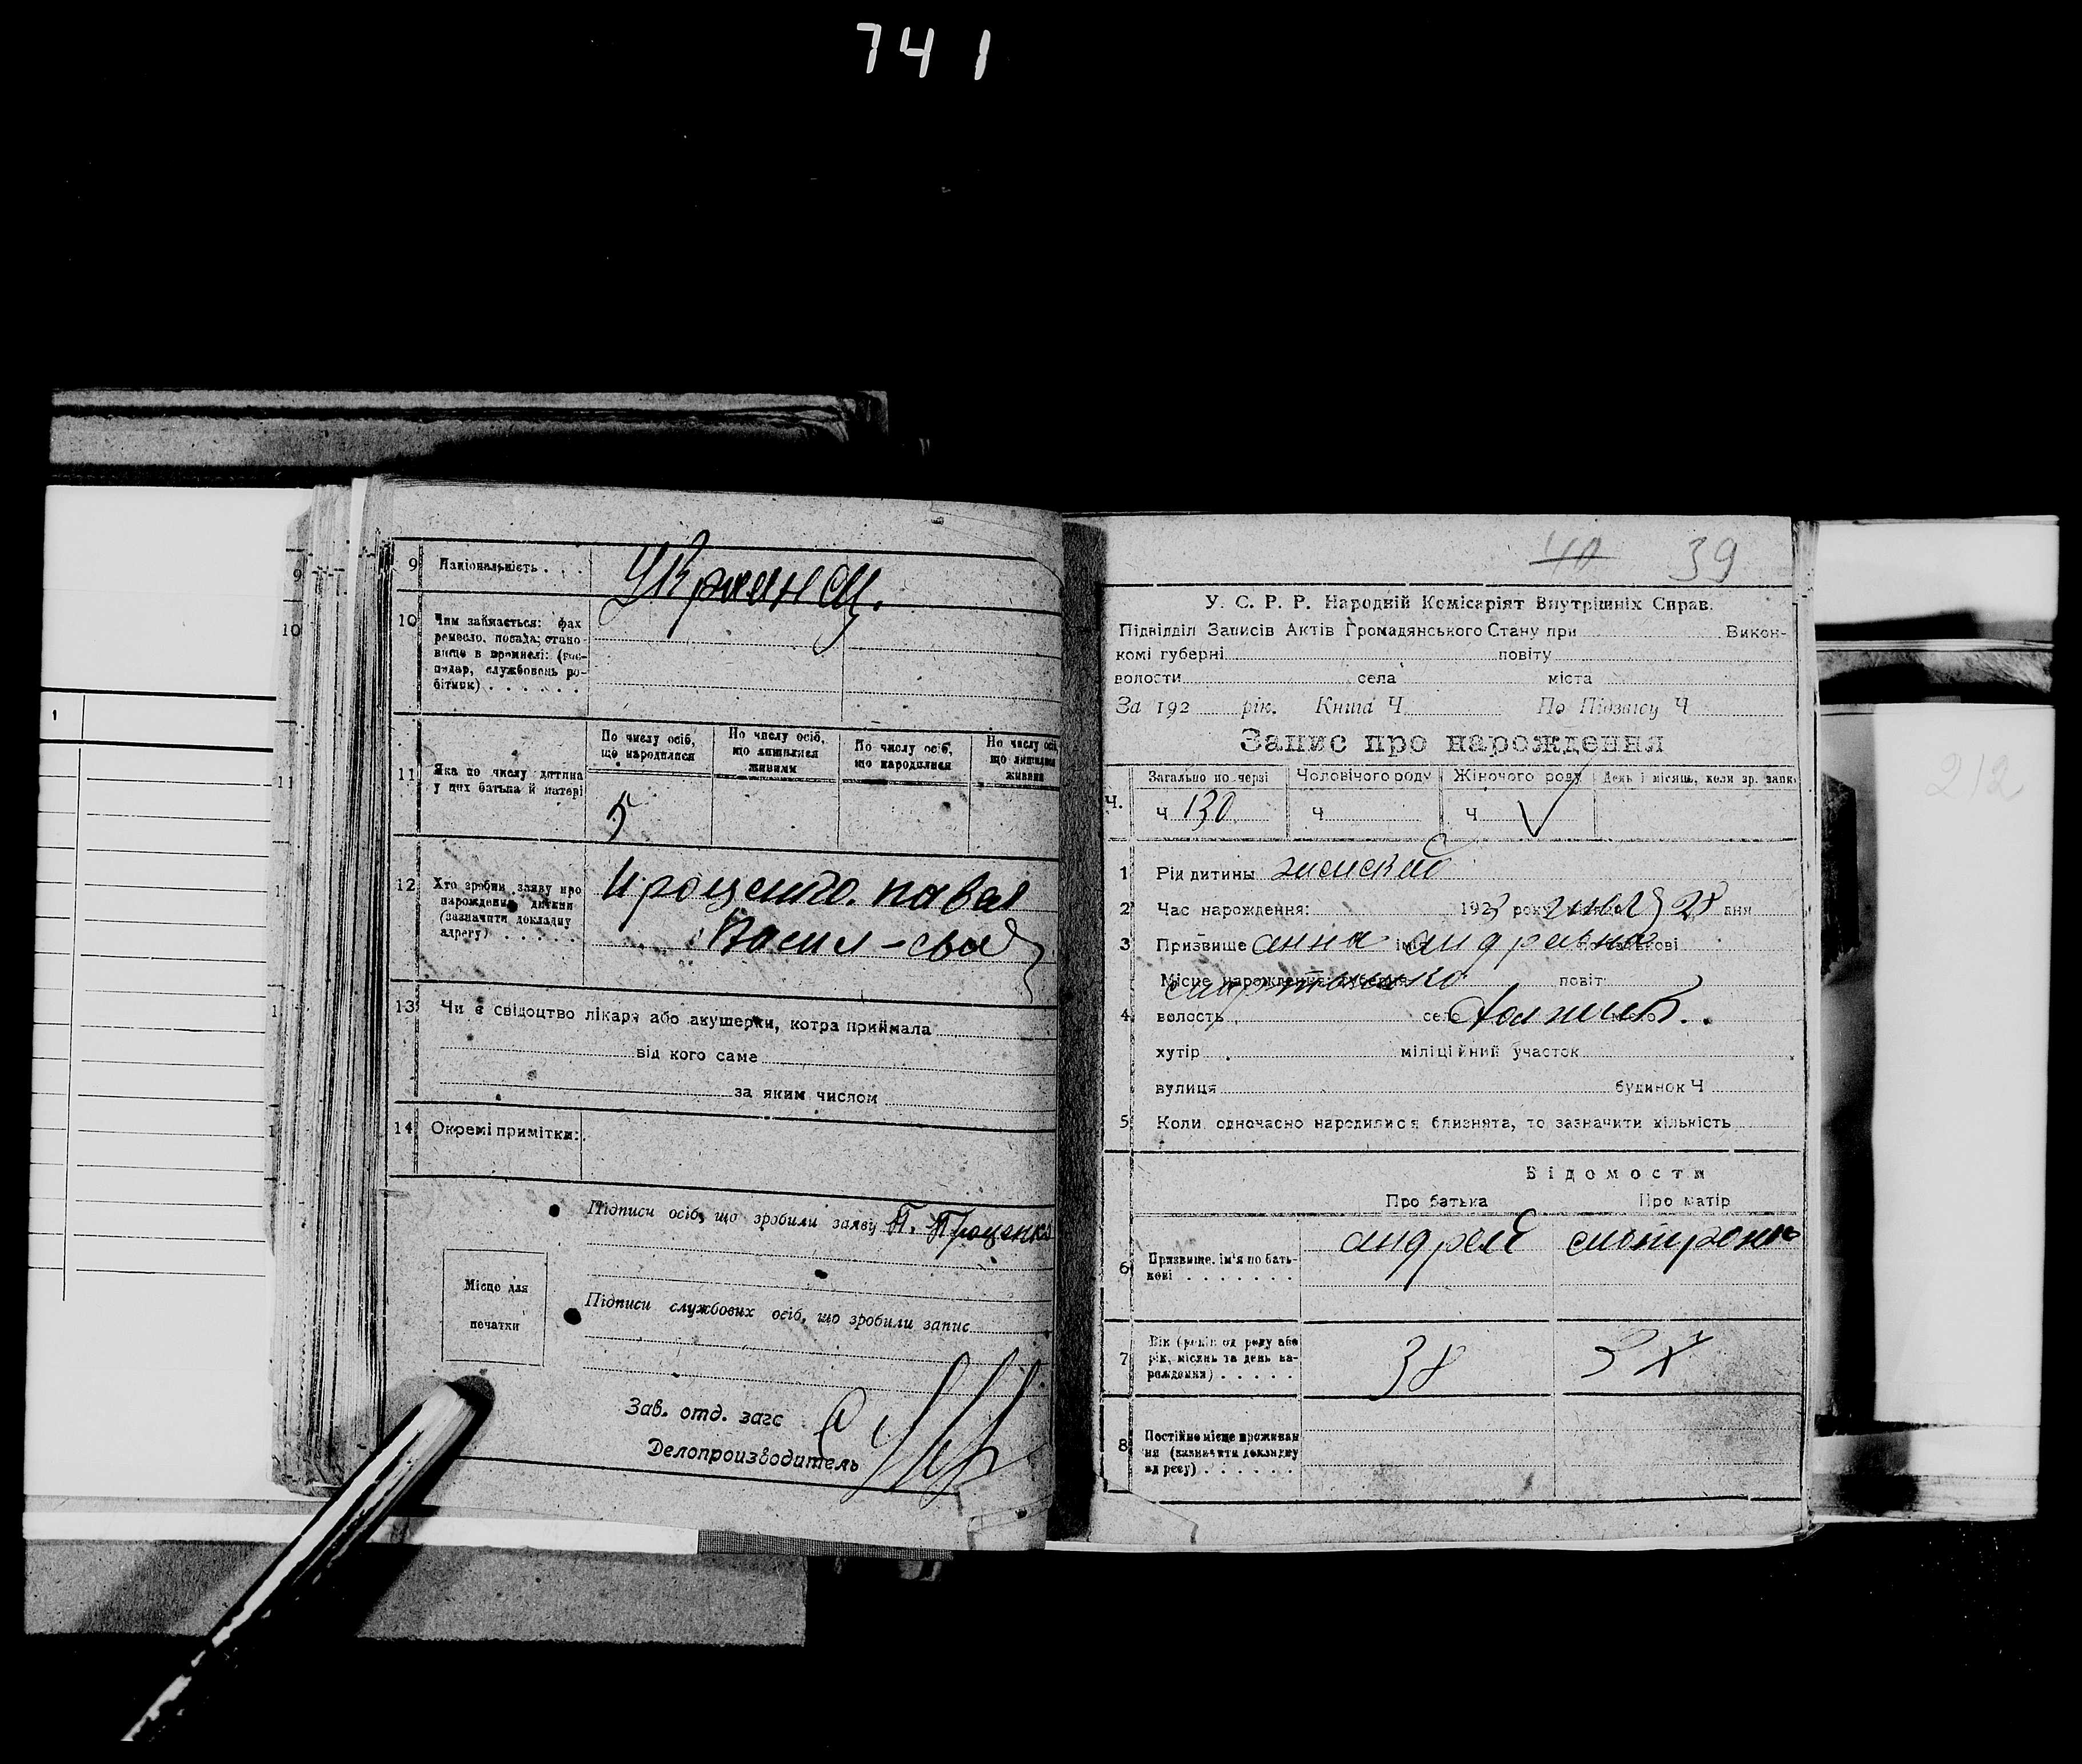 741
9 Національність . . . Украинец.
10 Чим займається: фах
ремесло, посада; стано-
вище в промислі: (гос-
подар, службовець ро-
бітник) . . . . . .
По числу осіб, що народилися
По числу осіб, що лишилися живими
По числу осіб, що народилися
По числу осіб, що лишилися живими
11 Яка по числу дитина
у цих батька й матері
5
12 Хто зробив заяву про
нарождення дитини
(зазначити докладну
адресу) . . . . .
Проценко. Павел
13 Чи є свідоцтво лікаря або акушерки, котра приймала
від кого саме
за яким числом
14 Окремі примітки:
Підписи осіб, що зробили заяву П. Проценко
Місце для
печатки
Підписи службових осіб, що зробили запис
Зав. отд. загс
Делопроизводитель
40 39
У. С. Р. Р. Народній Комісаріят Внутрішніх Справ.
Підвідділ Записів Актів Громадянського Стану при Викон-
комі губерні повіту
волости села міста
За 192 рік. Книга Ч. По Підзапису Ч
Запис про нарождення
Загально по черзі Чоловічого роду Жіночого роду День і місяць, коли зр. запис
Ч. Ч 130 Ч Ч V
1 Рід дитини женский
2 Час нарождення: 1923 року 28 дня
3 Призвище анна ім'я андреевна по батькові
Місце нарождення: губерня повіт
4 волость село місто
хутір міліційний участок
вулиця будинок Ч
5 Коли одночасно народилися близнята, то зазначити кількість
Відомости
Про батька Про матір
6 Призвище, ім'я по бать-
кові . . . . . . .
андрей
7 Вік (років од роду або
рік, місяць та день на-
рождення) . . . . .
38
8 Постійне місце проживан
ня (зазначити докладну
адресу) . . . . . .
212